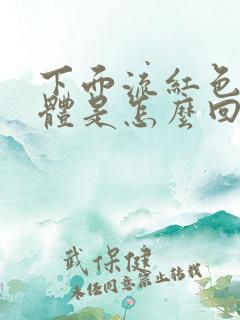 下而流紅色
體是怎麼回
武保健
未经同意禁止转载